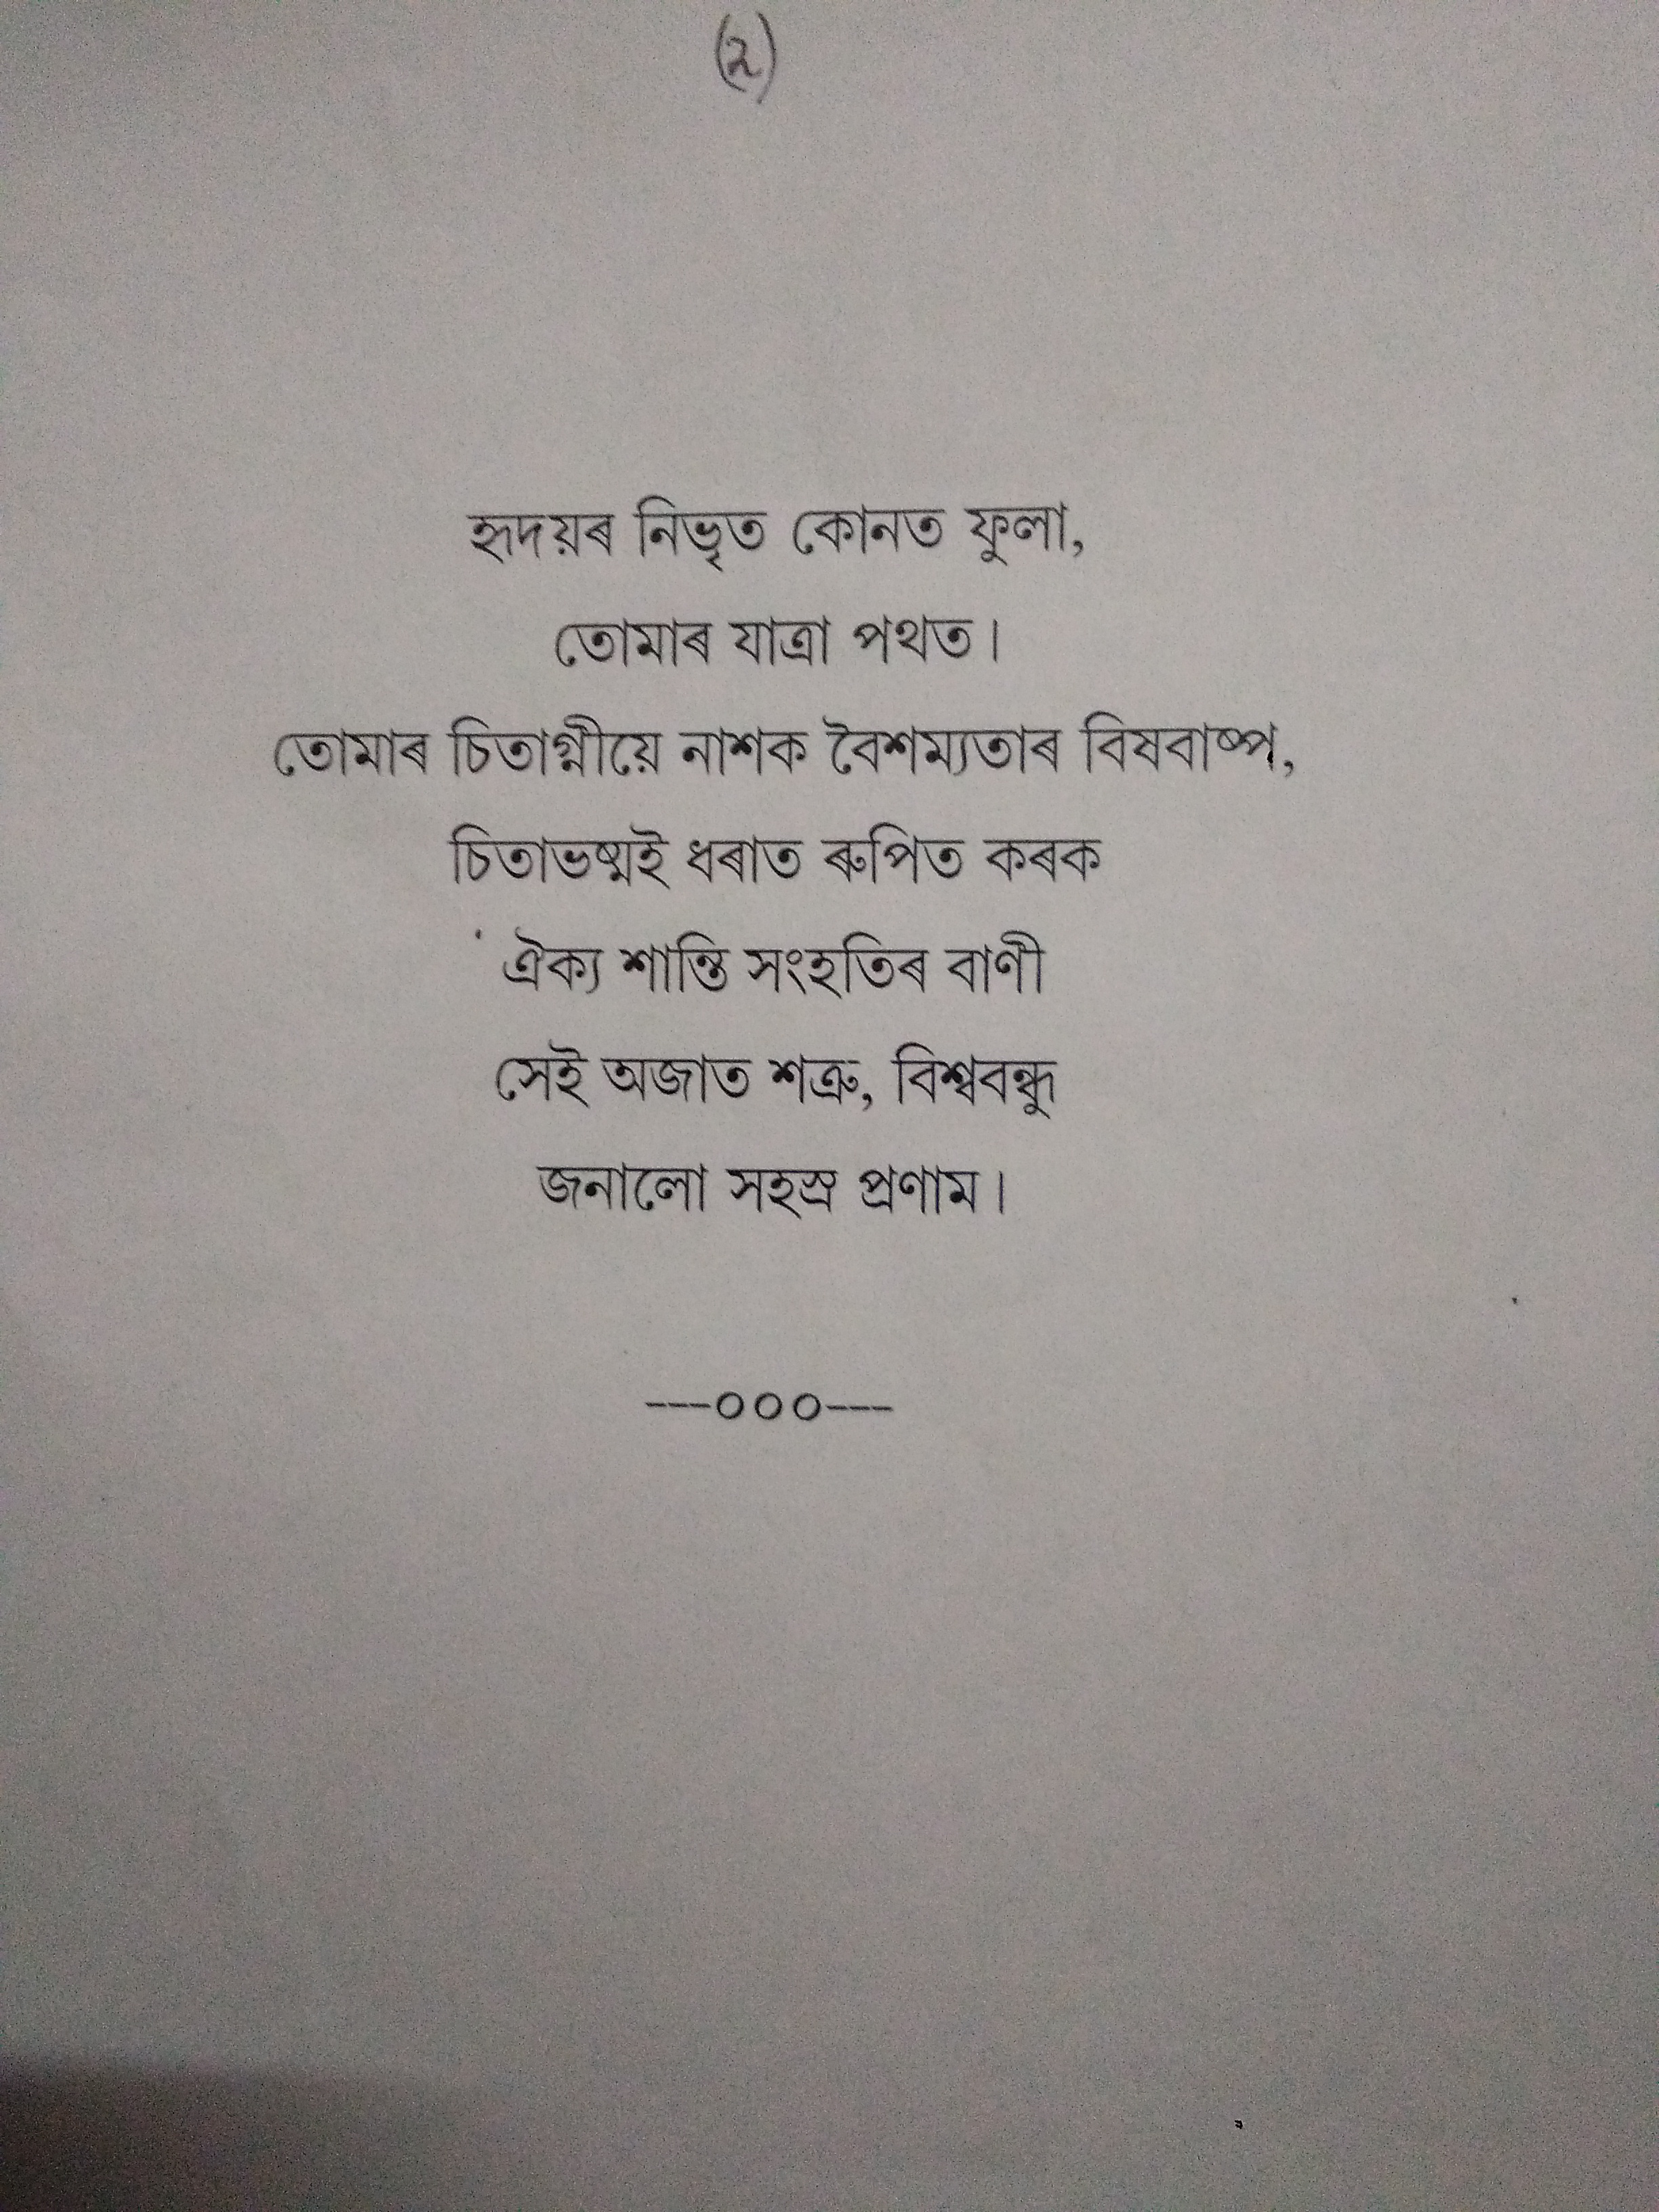 (২)
হৃদয়ৰ নিভৃত কোনত ফুলা,
তোমাৰ যাত্ৰা পথত।
তোমাৰ চিতাগ্নীয়ে নাশক বৈশম্যতাৰ বিষবাষ্প,
চিতাভষ্মই ধৰাত ৰুপিত কৰক
ঐক্য শান্তি সংহতিৰ বাণী
সেই অজাত শত্ৰু, বিশ্ববন্ধু
জনালো সহস্ৰ প্ৰণাম।
---০০০---